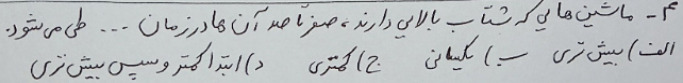 ۴- ماشین هایی که شتاب بالایی دارند، صفر تا صد آن ها در زمان ... طی می شود.
الف) بیش تری ب) یکسانی ج) کمتری د) ابتدا کمتر و سپس بیش تری